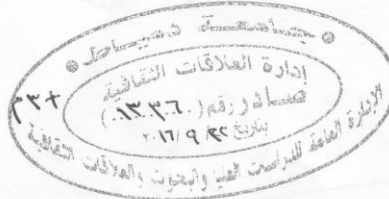 جامعة دمياط
إدارة العلاقات الثقافية
صادر رقم (١٣٣٦٠)
بتاريخ ٢٢ / ٩ / ٢٠١٦
الإدارة العامة للدراسات العليا والبحوث والعلاقات الثقافية